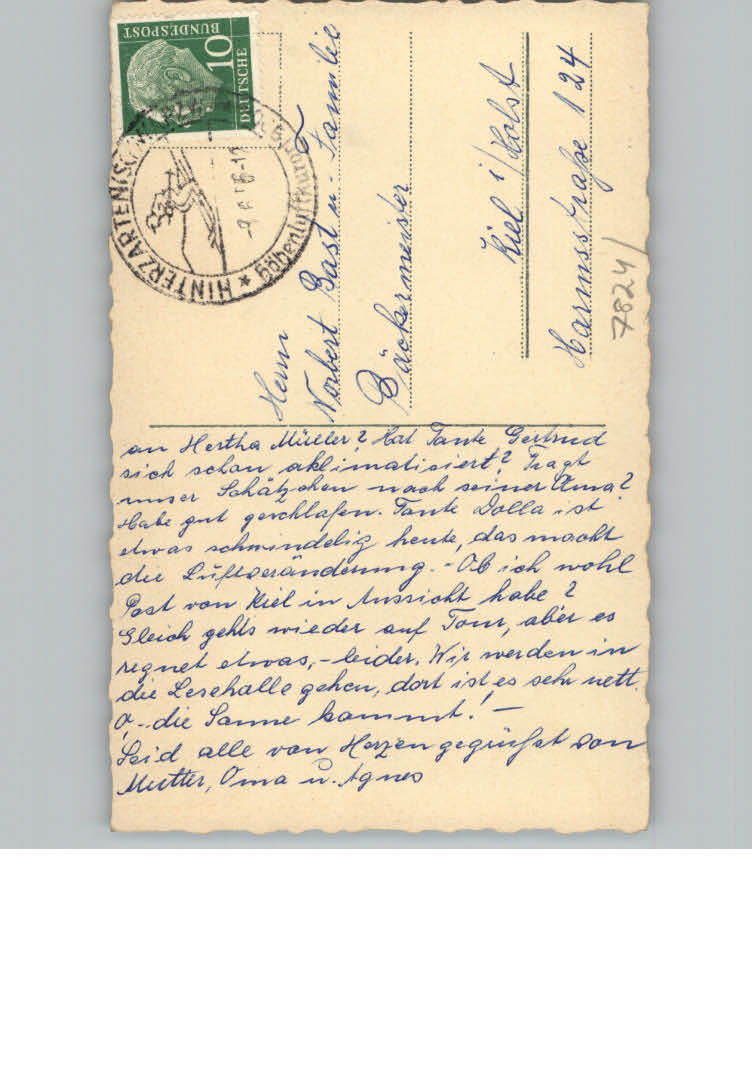 DEUTSCHE
BUNDESPOST
10
HINTERZARTEN
Höhenluftkurort
Herrn
Norbert Bast u. Familie
Bäckermeister
Kiel i/Holst
Harmsstraße 124
7824/
an Hertha Müller? Hat Tante Gertrud
sich schon aklimatisiert? Fragt
unser Schätzchen nach seiner Oma?
Habe gut geschlafen. Tante Dolla ist
etwas schwindelig heute, das macht
die Luftveränderung. - Ob ich wohl
Post von Kiel in Aussicht habe?
Gleich gehts wieder auf Tour, aber es
regnet etwas, - leider. Wir werden in
die Lesehalle gehen, dort ist es sehr nett.
O - die Sonne kommt! -
Seid alle von Herzen gegrüßt von
Mutter, Oma u. Agnes